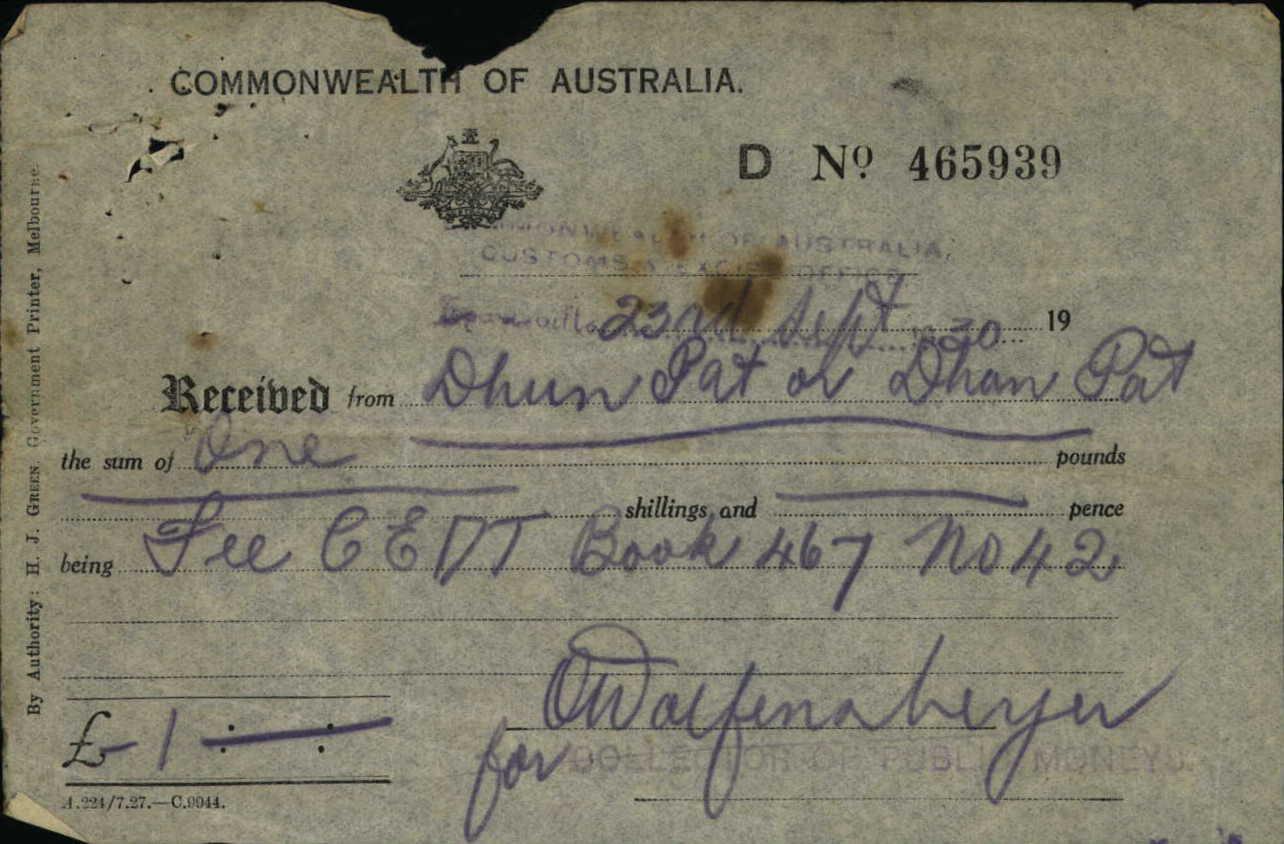 COMMONWEALTH OF AUSTRALIA.
D Nº 465939
COMMONWEALTH OF AUSTRALIA,
CUSTOMS & EXCISE OFFICE
23rd Sept 30 19
Received from Dhun Pat or Dhan Pat
the sum of One pounds
shillings and pence
being Fee CEDT Book 467 No 42
£ 1 : :
for
COLLECTOR OF PUBLIC MONEYS.
A.224/7.27.—C.9944.
By Authority: H. J. GREEN, Government Printer, Melbourne.